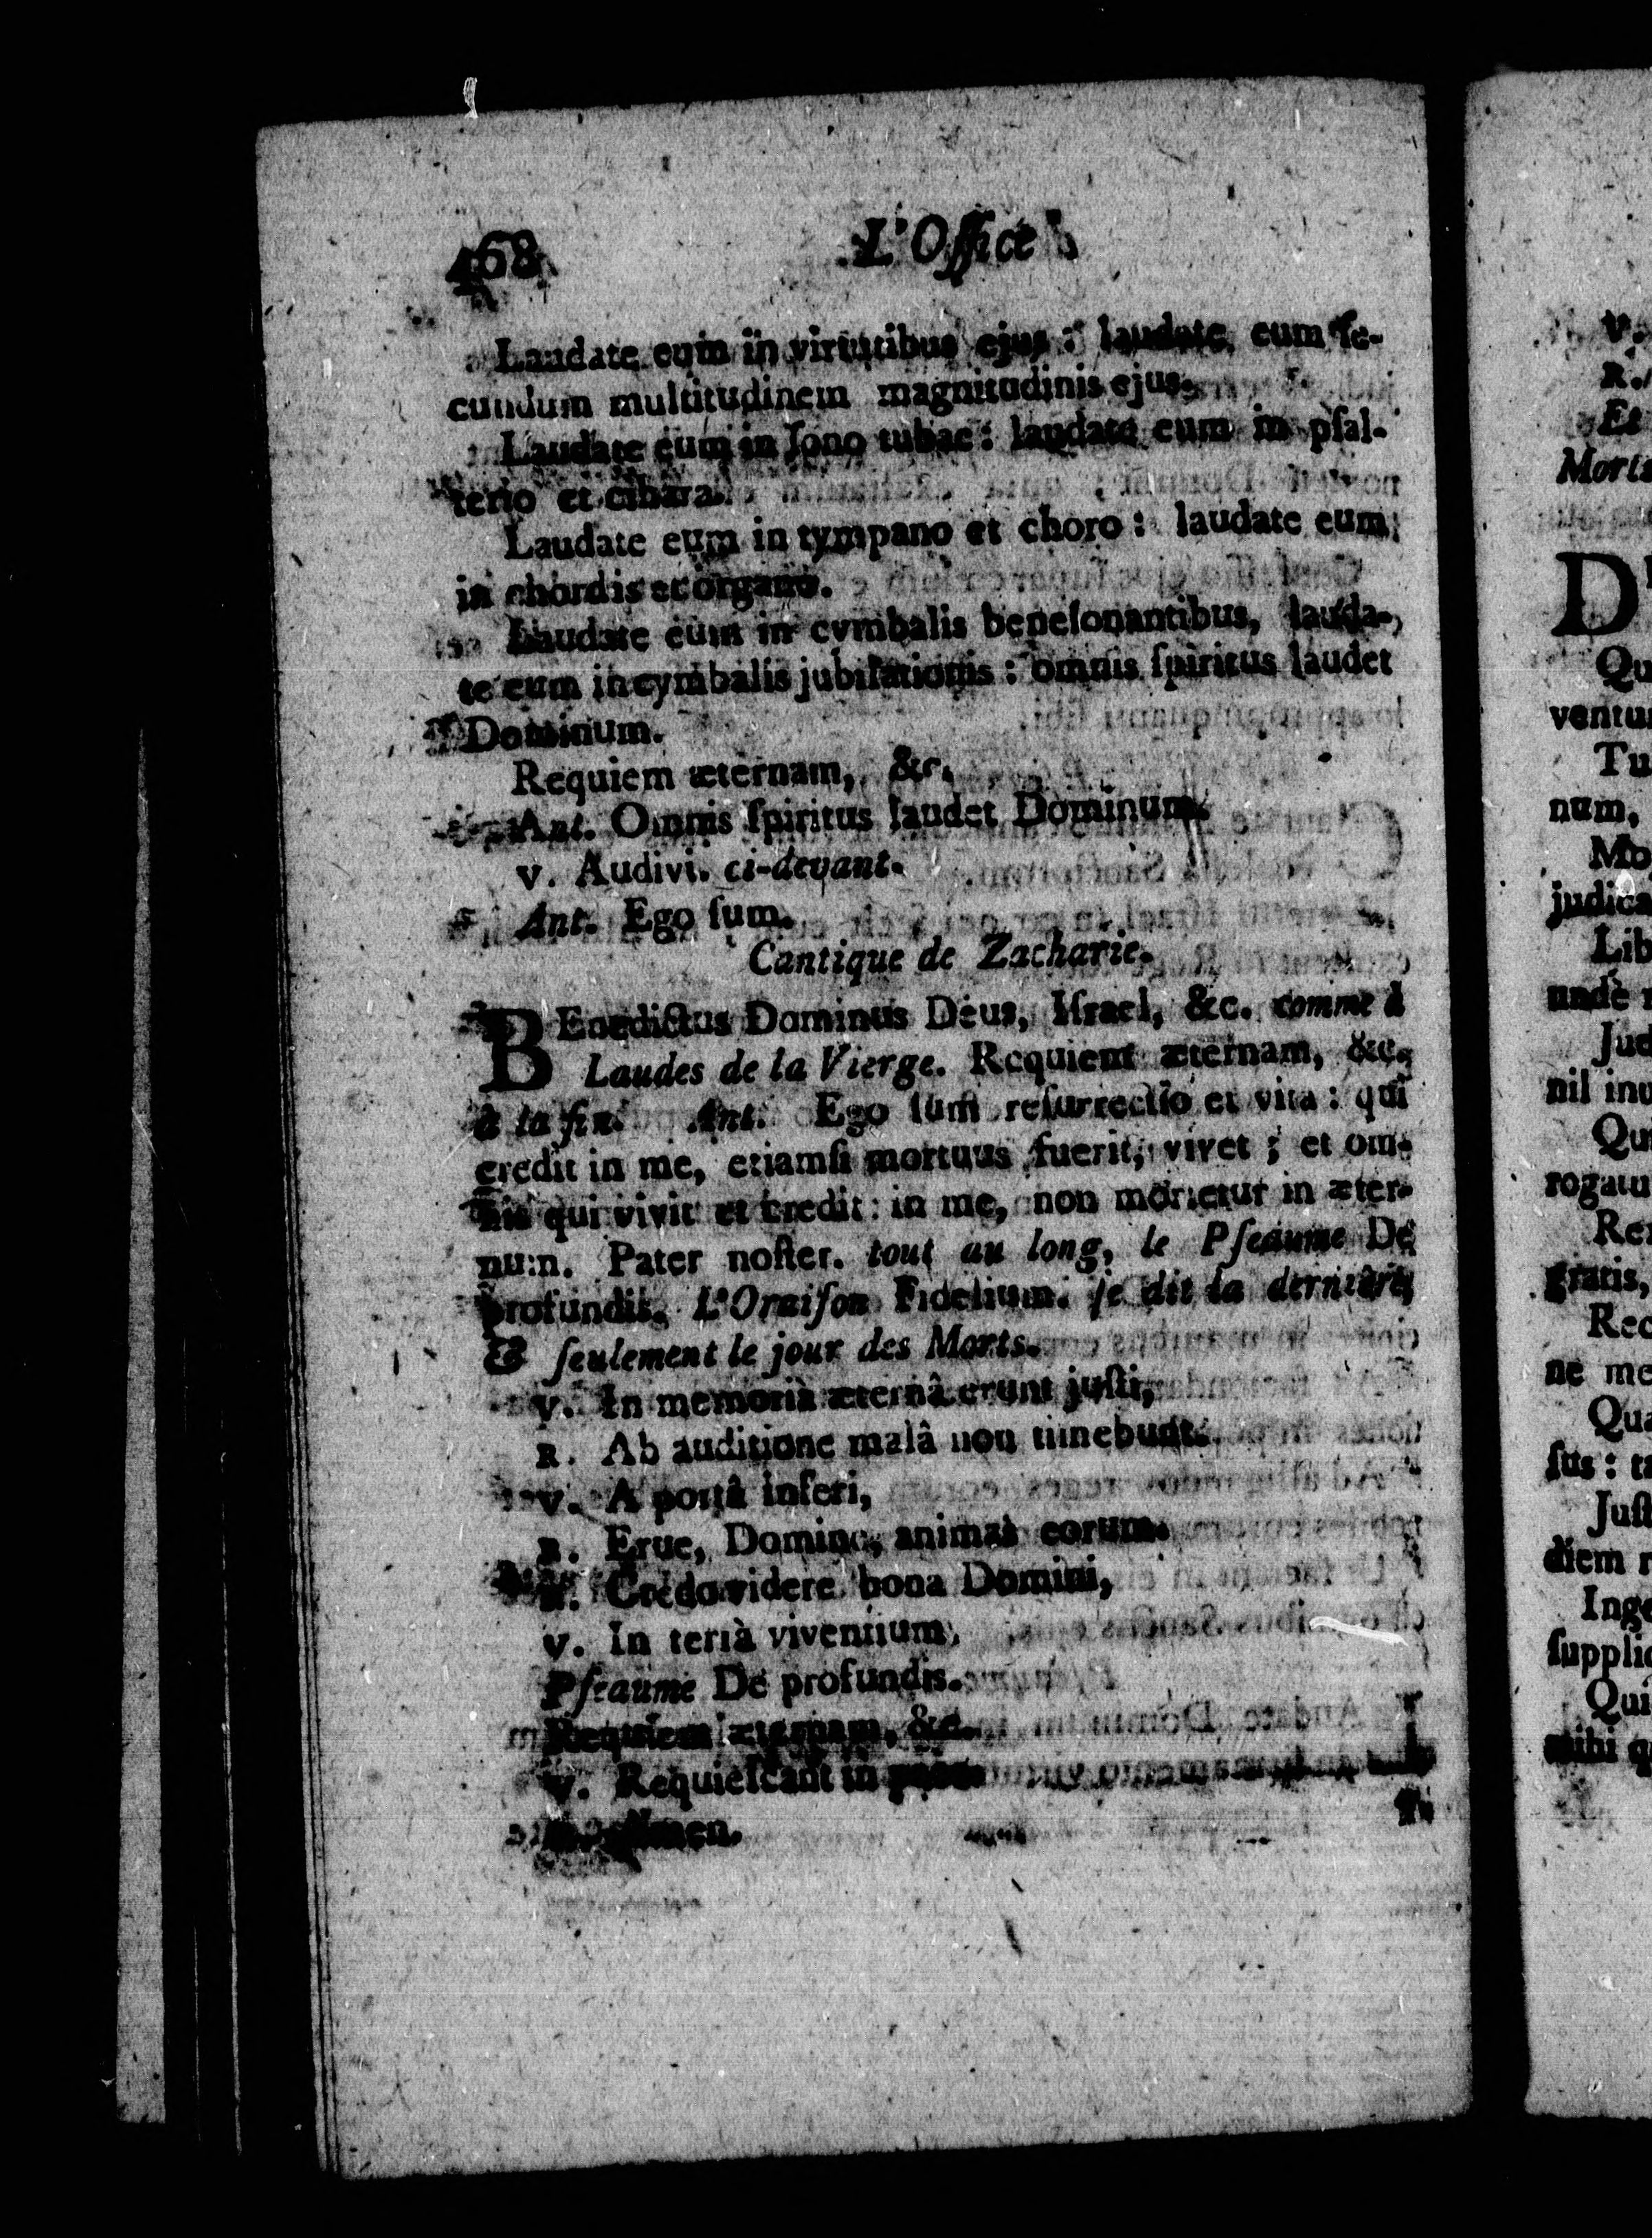 468
L'Office
Laudate eum in virtutibus ejus : laudate eum ſe-
cundum multitudinem magnitudinis ejus.
Laudate eum in ſono tubae : laudate eum in pſal-
terio et cithara.
Laudate eum in tympano et choro : laudate eum
in chordis et organo.
Laudate eum in cymbalis beneſonantibus, lauda-
te eum in cymbalis jubilationis : omnis ſpiritus laudet
Dominum.
Requiem æternam, &c.
Ant. Omnis ſpiritus laudet Dominum.
v. Audivi. ci-devant.
Ant. Ego ſum.
Cantique de Zacharie.
BEnedictus Dominus Deus, Iſrael, &c. comme à
Laudes de la Vierge. Requiem æternam, &c.
à la fin. Ant. Ego ſum reſurrectio et vita : qui
credit in me, etiamſi mortuus fuerit, vivet ; et om-
nis qui vivit et credit in me, non morietur in æter-
num. Pater noſter. tout au long, le Pſeaume De
profundis. L'Oraiſon Fidelium. ſe dit la dernière,
& ſeulement le jour des Morts.
v. In memoriâ æternâ erunt juſti,
R. Ab auditione malâ non timebunt.
v. A portâ inferi,
R. Erue, Domine, animas eorum.
Credo videre bona Domini,
v. In terrà viventium.
Pſeaume De profundis.
Requiem æternam, &c.
v. Requieſcant in pace.
Amen.
v.
R.
Et
Morts
D
Qu
ventu
Tu
num,
Mo
judica
Lib
undè
Jud
nil inu
Qu
rogatu
Re
gratis,
Rec
ne me
Qua
ſus : t
Juſt
diem r
Inge
ſupplic
Qui
mihi q